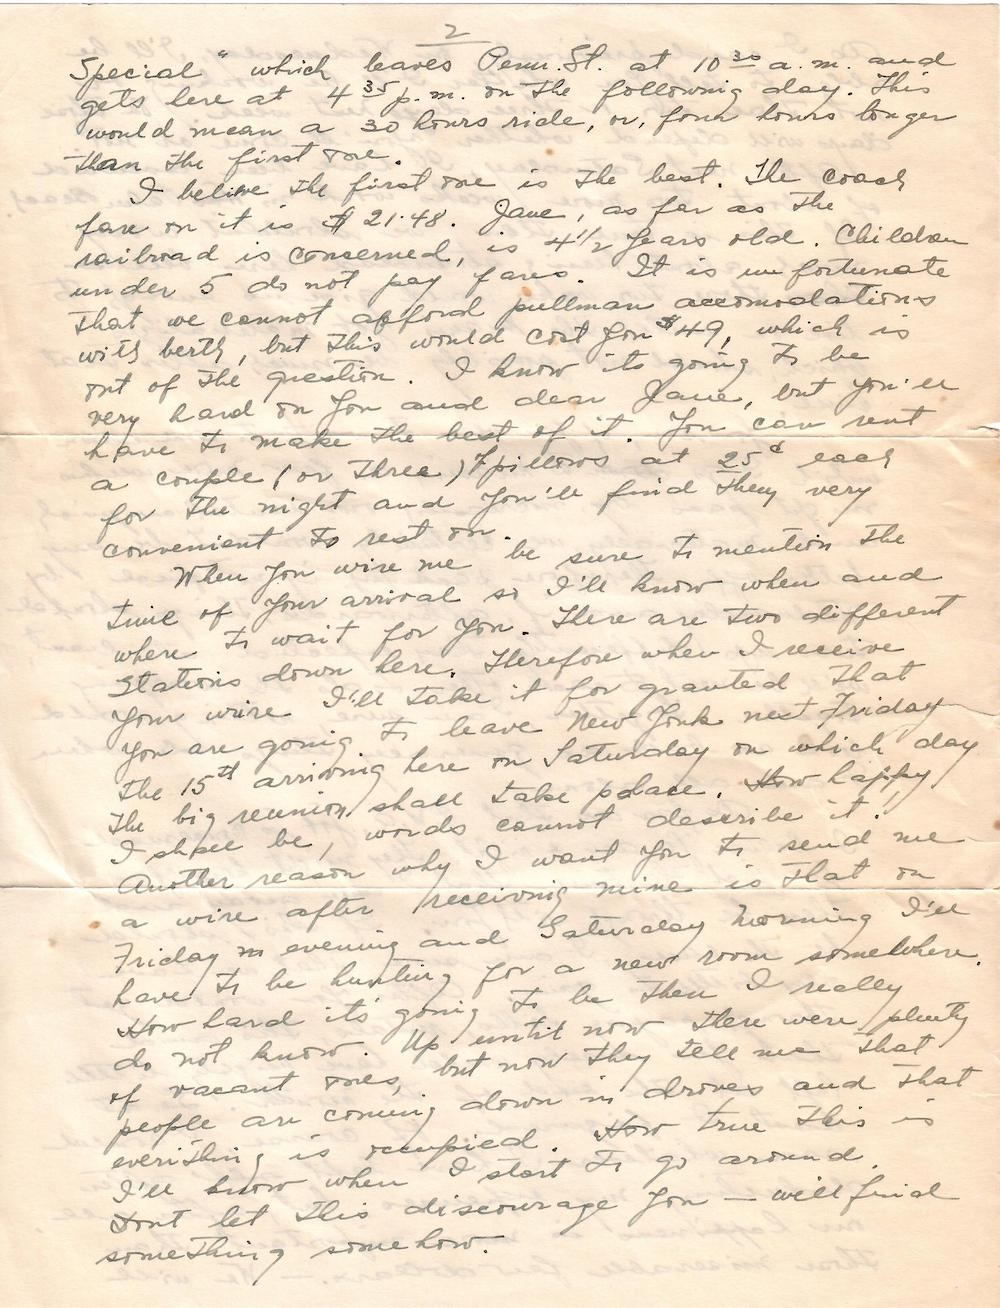 2
Special" which leaves Penn. St. at 10 30 a.m. and
gets here at 4 35 p.m. on the following day. This
would mean a 30 hours ride, or, four hours longer
than the first one.
I belive the first one is the best. The coach
fare on it is $ 21.48. Jane, as far as the
railroad is conserned, is 4 1/2 years old. Children
under 5 do not pay fares. It is unfortunate
that we cannot afford pullman accomodations
with berth, but this would cost you $49, which is
out of the question. I know its going to be
very hard on you and dear Jane, but you'll
have to make the best of it. You can rent
a couple (or three) pillows at 25¢ each
for the night and you'll find they very
convenient to rest on.
When you wire me be sure to mention the
time of your arrival so I'll know when and
where to wait for you. There are two different
stations down here. Therefore when I receive
your wire I'll take it for granted that
you are going to leave New York next Friday
the 15th arriving here on Saturday on which day
the big reunion shall take palace. How happy
I shall be, words cannot describe it!
Another reason why I want you to send me
a wire after receiving mine is that on
Friday evening and Saturday morning I'll
have to be hunting for a new room somewhere.
How hard it's going to be then I really
do not know. Up until now there were plenty
of vacant ones, but now they tell me that
people are coming down in droves and that
everithing is occupied. How true this is
I'll know when I start to go around.
Dont let this discourage you — will find
something somehow.